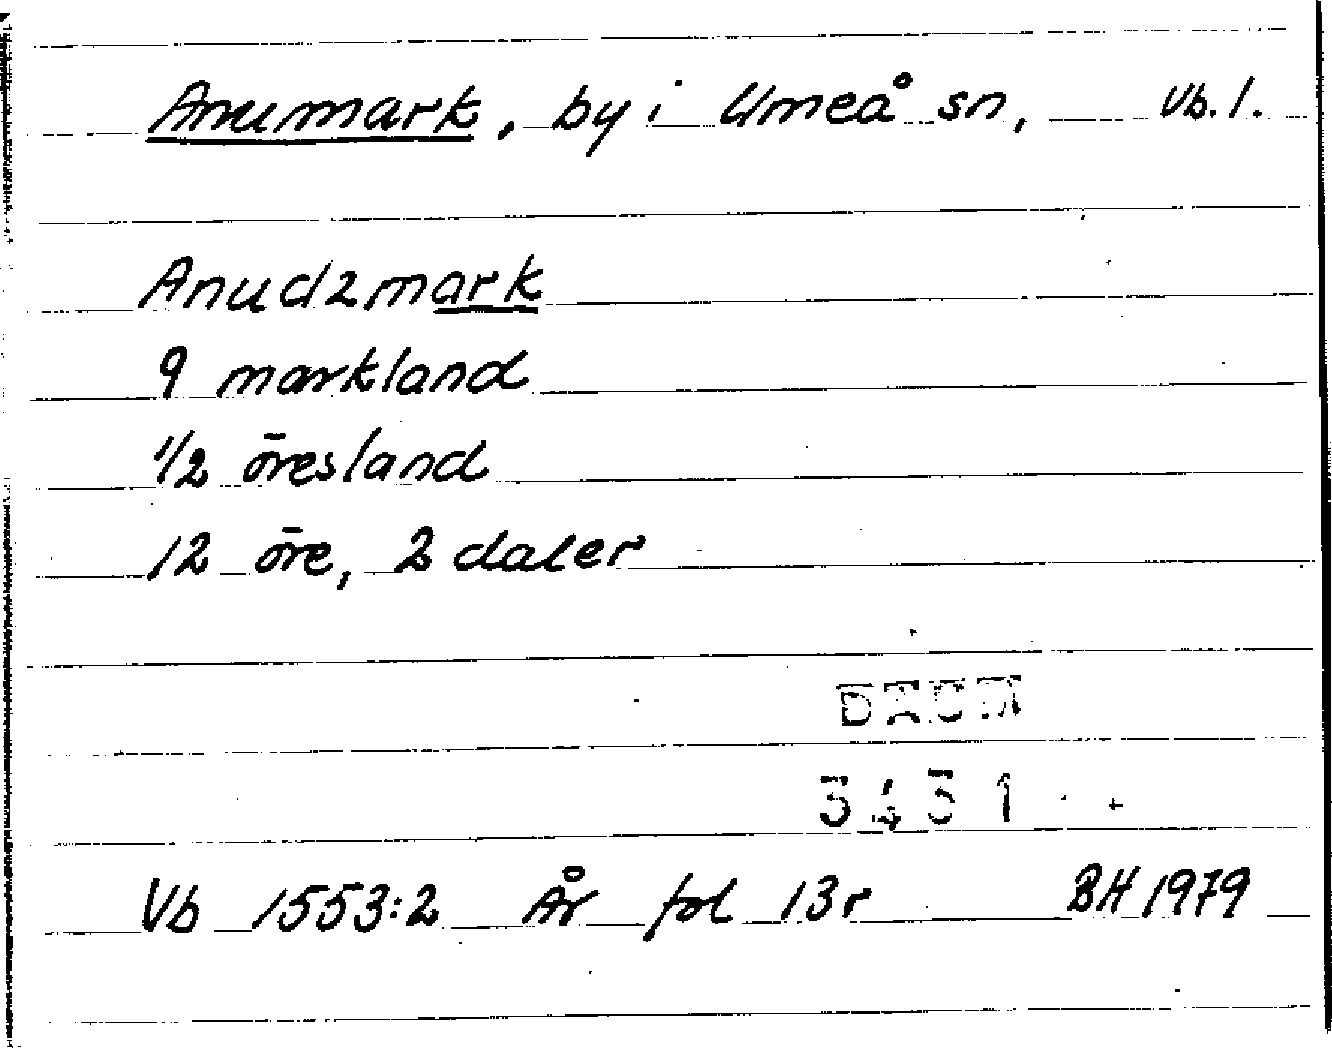 Anumark, by i Umeå sn, Vb. l.
Anudzmark
9 markland
1/2 öresland
12 öre, 2 daler
DAUM
3431
Vb 1553:2 År fol 13r BH 1979